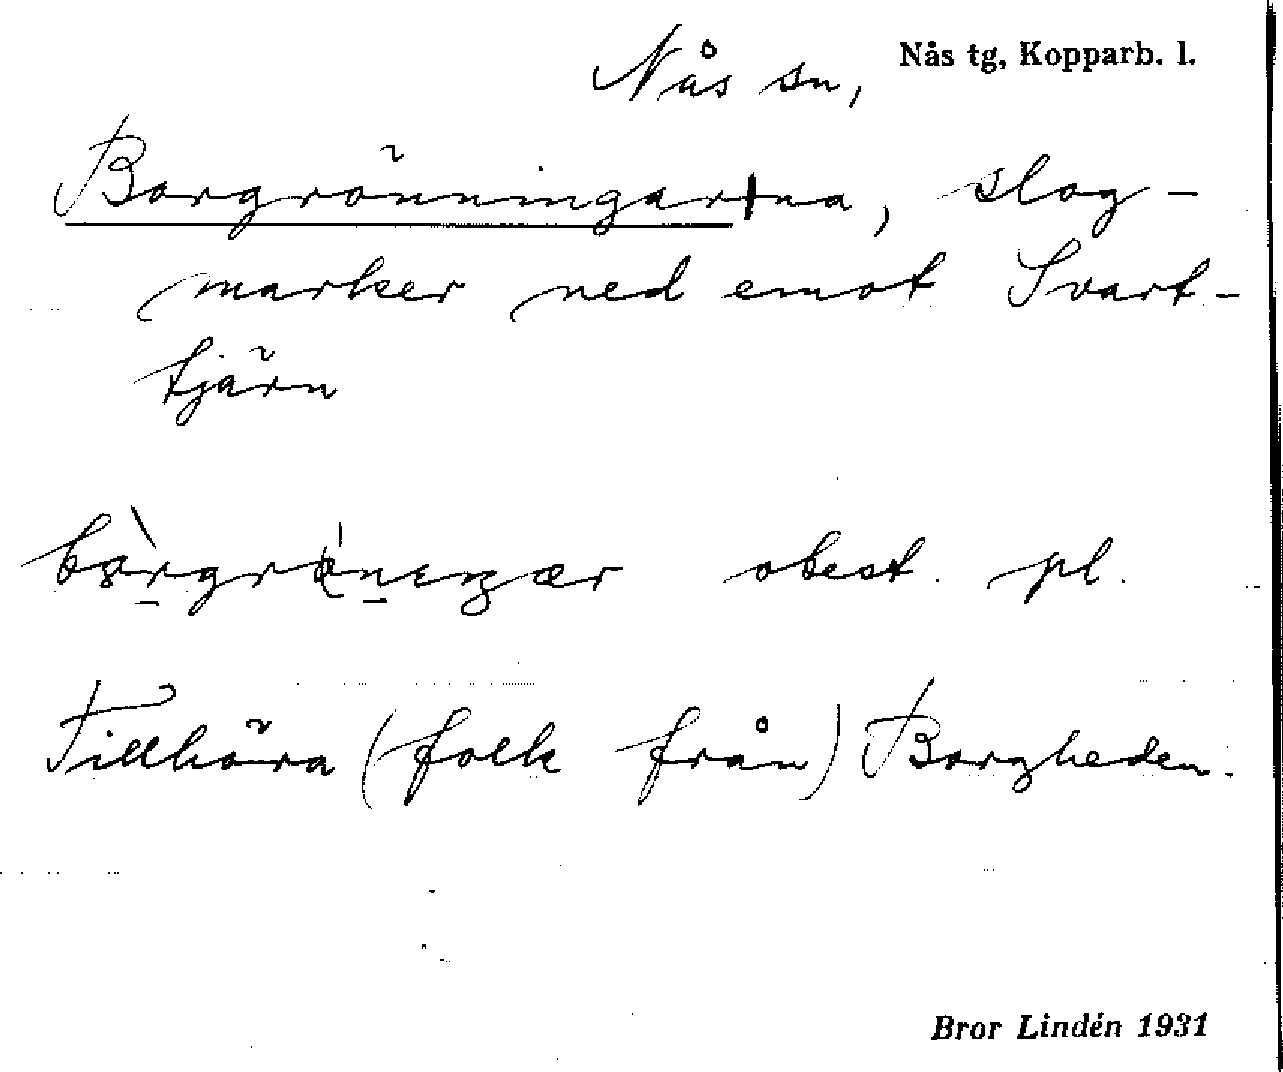 Nås sn, Nås tg, Kopparb. l.
Borgrönningar|na, slog-
marker ned emot Svart-
tjärn
obest. pl.
Tillhöra (folk från) Borgheden.
Bror Lindén 1931